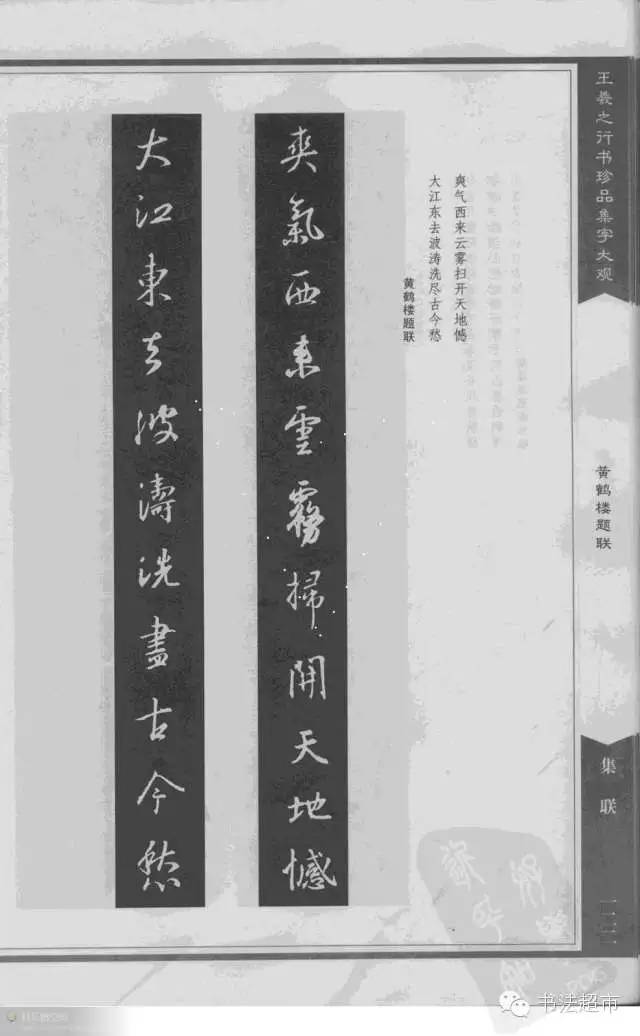 王羲之行书珍品集字大观
黄鹤楼题联
集联
爽气西来云雾扫开天地憾
大江东去波涛洗尽古今愁
黄鹤楼题联
爽氣西来雲霧掃開天地憾
大江東去波濤洗盡古今愁
书法超市